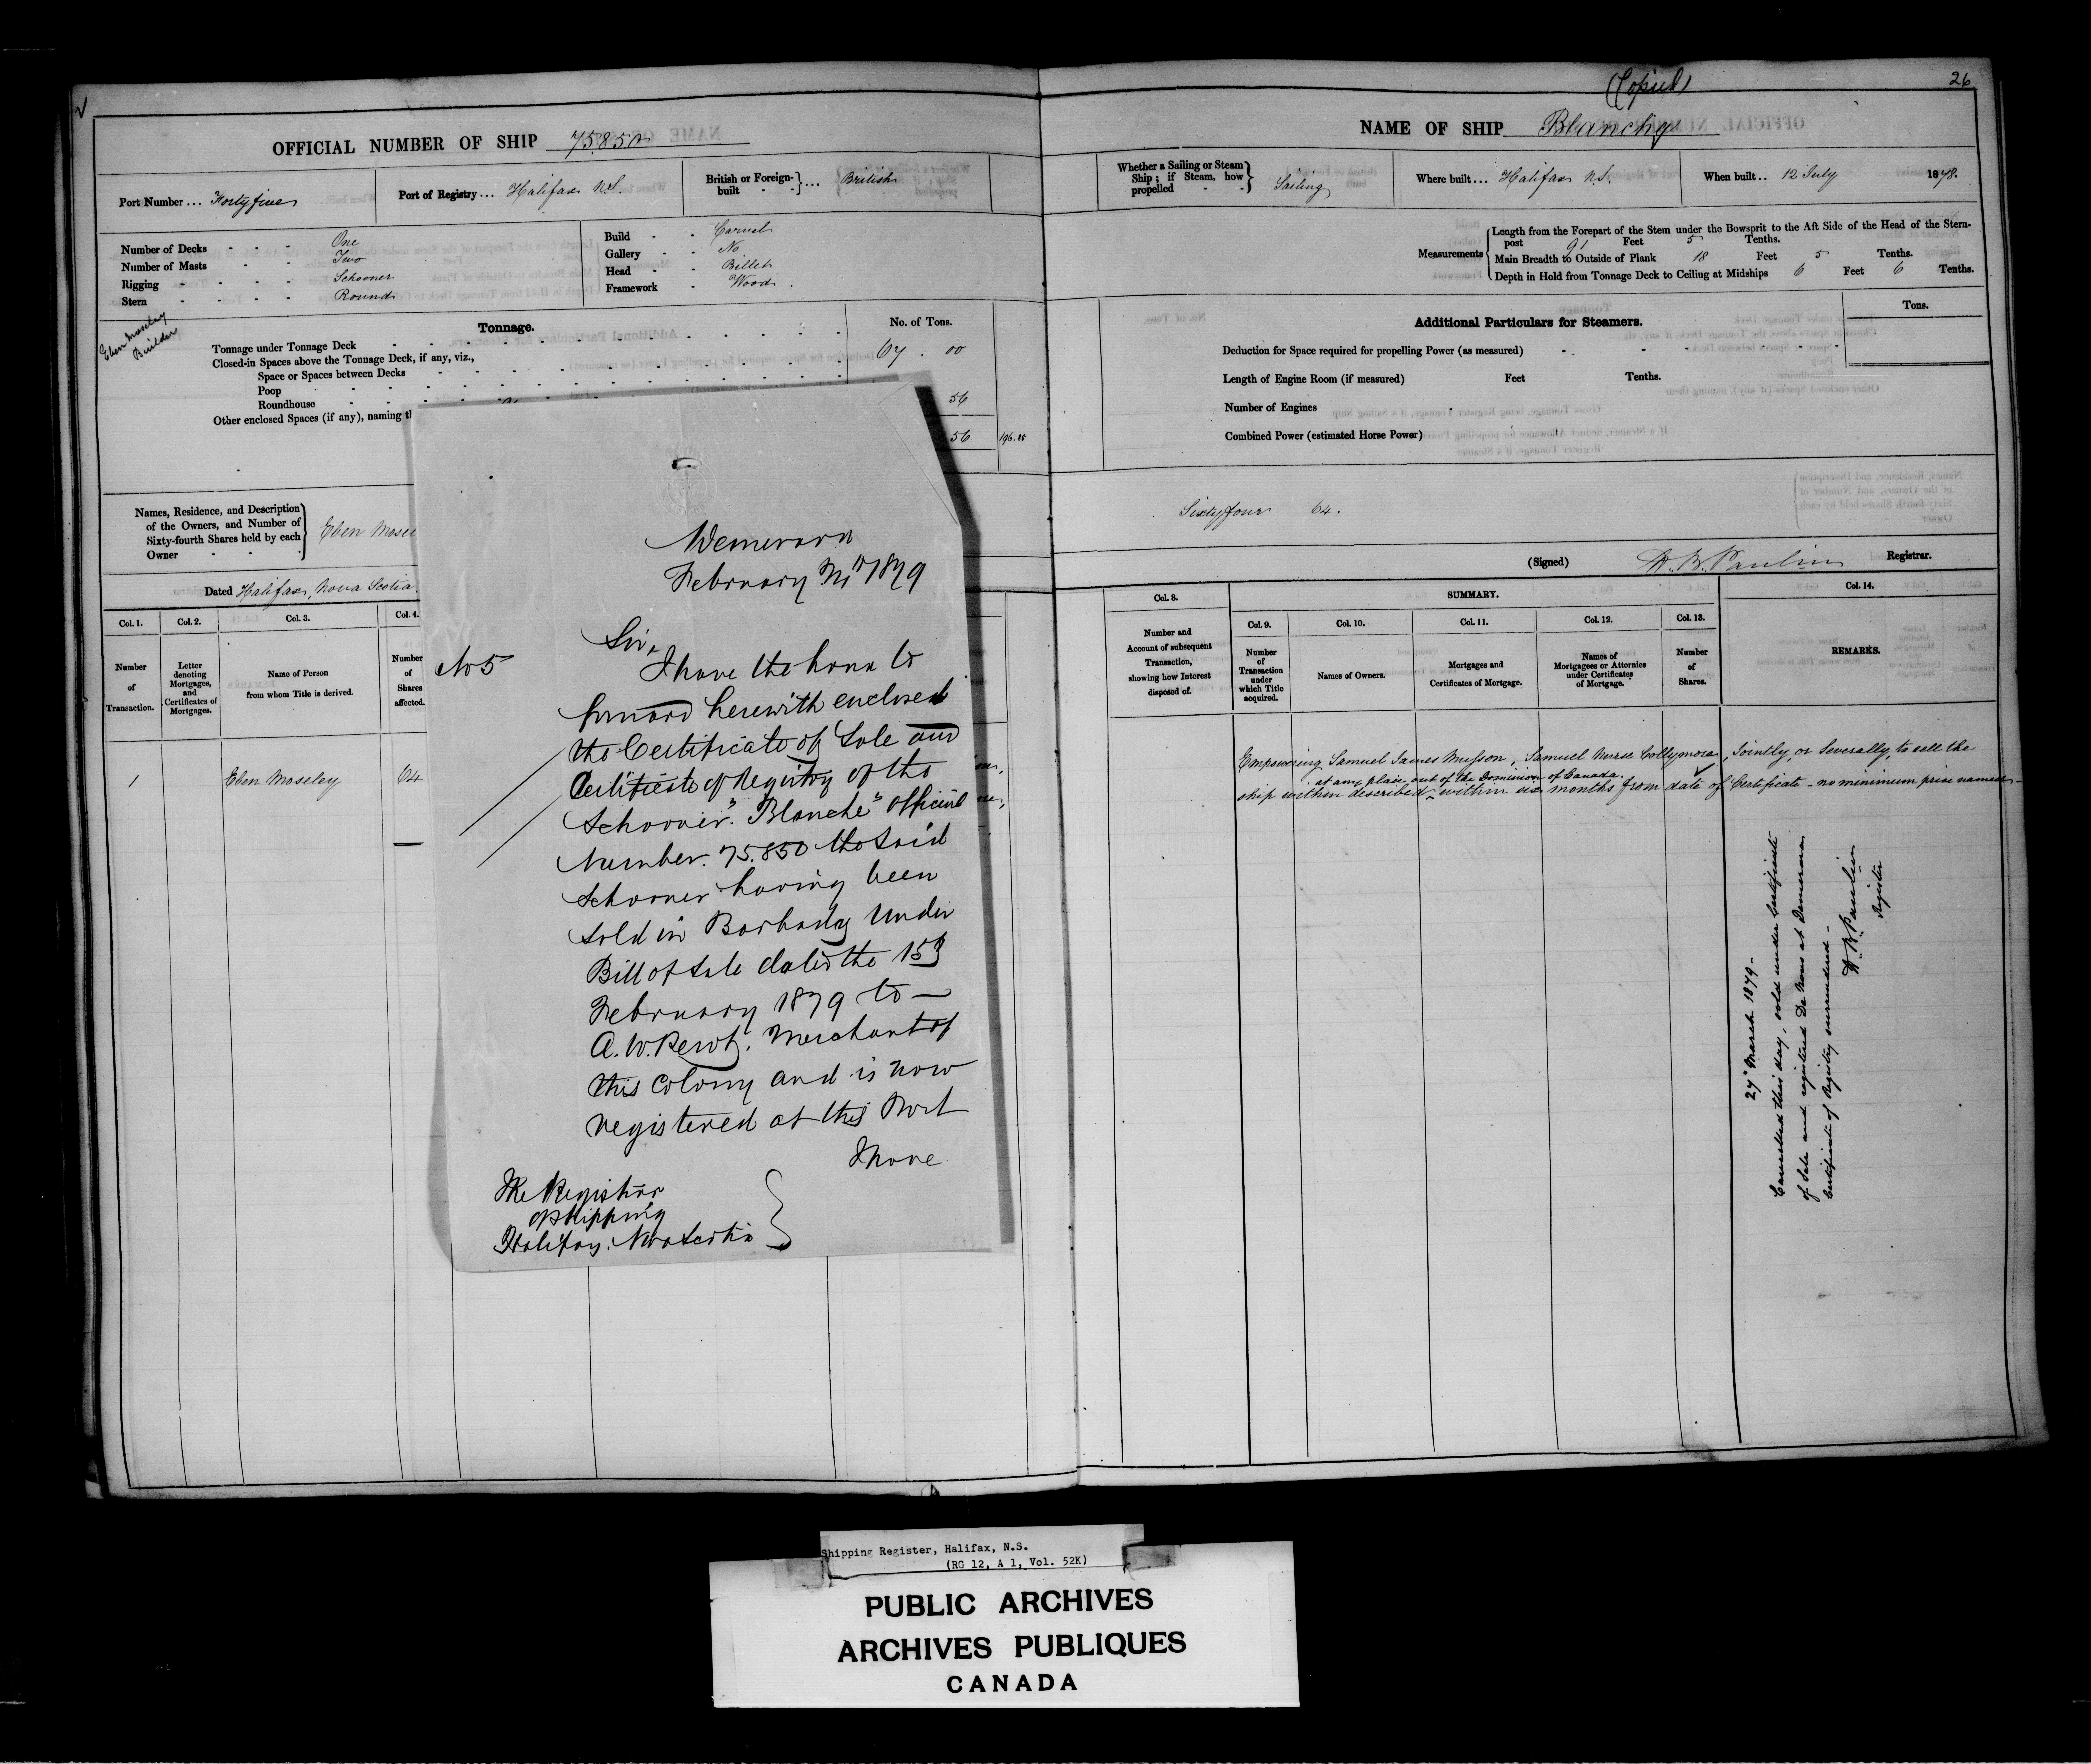 (Copied)
26
OFFICIAL NUMBER OF SHIP 75.850
NAME OF SHIP Blanche
Port Number ... Fortyfive
Port of Registry ... Halifax N.S.
British or Foreign-built - - } ... British
Whether a Sailing or Steam Ship; if Steam, how propelled - - } Sailing
Where built ... Halifax N.S.
When built .. 12 July 1878.
Number of Decks - - - One
Number of Masts - - - Two
Rigging - - - - Schooner
Stern - - - - Round
Build - - Carvel
Gallery - - No
Head - - Billet
Framework - Wood.
Measurements
Length from the Forepart of the Stem under the Bowsprit to the Aft Side of the Head of the Stern-
post 91 Feet 5 Tenths.
Main Breadth to Outside of Plank 18 Feet 5 Tenths.
Depth in Hold from Tonnage Deck to Ceiling at Midships 6 Feet 6 Tenths.
Eben Moseley
Builder
Tonnage.
No. of Tons.
Tonnage under Tonnage Deck 67 . 00
Closed-in Spaces above the Tonnage Deck, if any, viz.,
Space or Spaces between Decks
Poop
Roundhouse 56
Other enclosed Spaces (if any), naming
56 196.85
Additional Particulars for Steamers.
Tons.
Deduction for Space required for propelling Power (as measured)
Length of Engine Room (if measured) Feet Tenths.
Number of Engines
Combined Power (estimated Horse Power)
Names, Residence, and Description
of the Owners, and Number of
Sixty-fourth Shares held by each
Owner - - -
Eben Mose
Sixtyfour 64.
Dated Halifax, Nova Scotia.
(Signed) W. B. Paulin Registrar.
Col. 1. Col. 2. Col. 3. Col. 4.
Number of Transaction.
Letter denoting Mortgages, and Certificates of Mortgages.
Name of Person from whom Title is derived.
Number of Shares affected.
1 Eben Moseley 64
Demerara
February 1879
No 5
Sir,
I have the honor to
forward herewith enclosed
the Certificate of Sale and
Certificate of Registry of the
Schooner "Blanche" official
Number. 75.850 the said
Schooner having been
sold in Barbados under
Bill of Sale dated the 15th
February 1879 to —
A. W. Merchant of
this Colony and is now
registered at this Port
I have
The Registrar
of Shipping
Halifax. Nova Scotia
Col. 8.
Number and Account of subsequent Transaction, showing how Interest disposed of.
SUMMARY.
Col. 9. Col. 10. Col. 11. Col. 12. Col. 13. Col. 14.
Number of Transaction under which Title acquired.
Names of Owners.
Mortgages and Certificates of Mortgage.
Names of Mortgagees or Attornies under Certificates of Mortgage.
Number of Shares.
REMARKS.
Empowering Samuel James Musson, Samuel Nurse Collymore, Jointly, or Severally, to sell the
at any place out of the Dominion of Canada.
ship within described ^ within six months from date of Certificate - no minimum price named -
27th March 1879 -
Cancelled this day, sold under Certificate
of Sale and registered De Novo at Demerara
Certificate of Registry surrendered -
W. B. Paulin
Register
Shipping Register, Halifax, N.S.
(RG 12, A 1, Vol. 52K)
PUBLIC ARCHIVES
ARCHIVES PUBLIQUES
CANADA